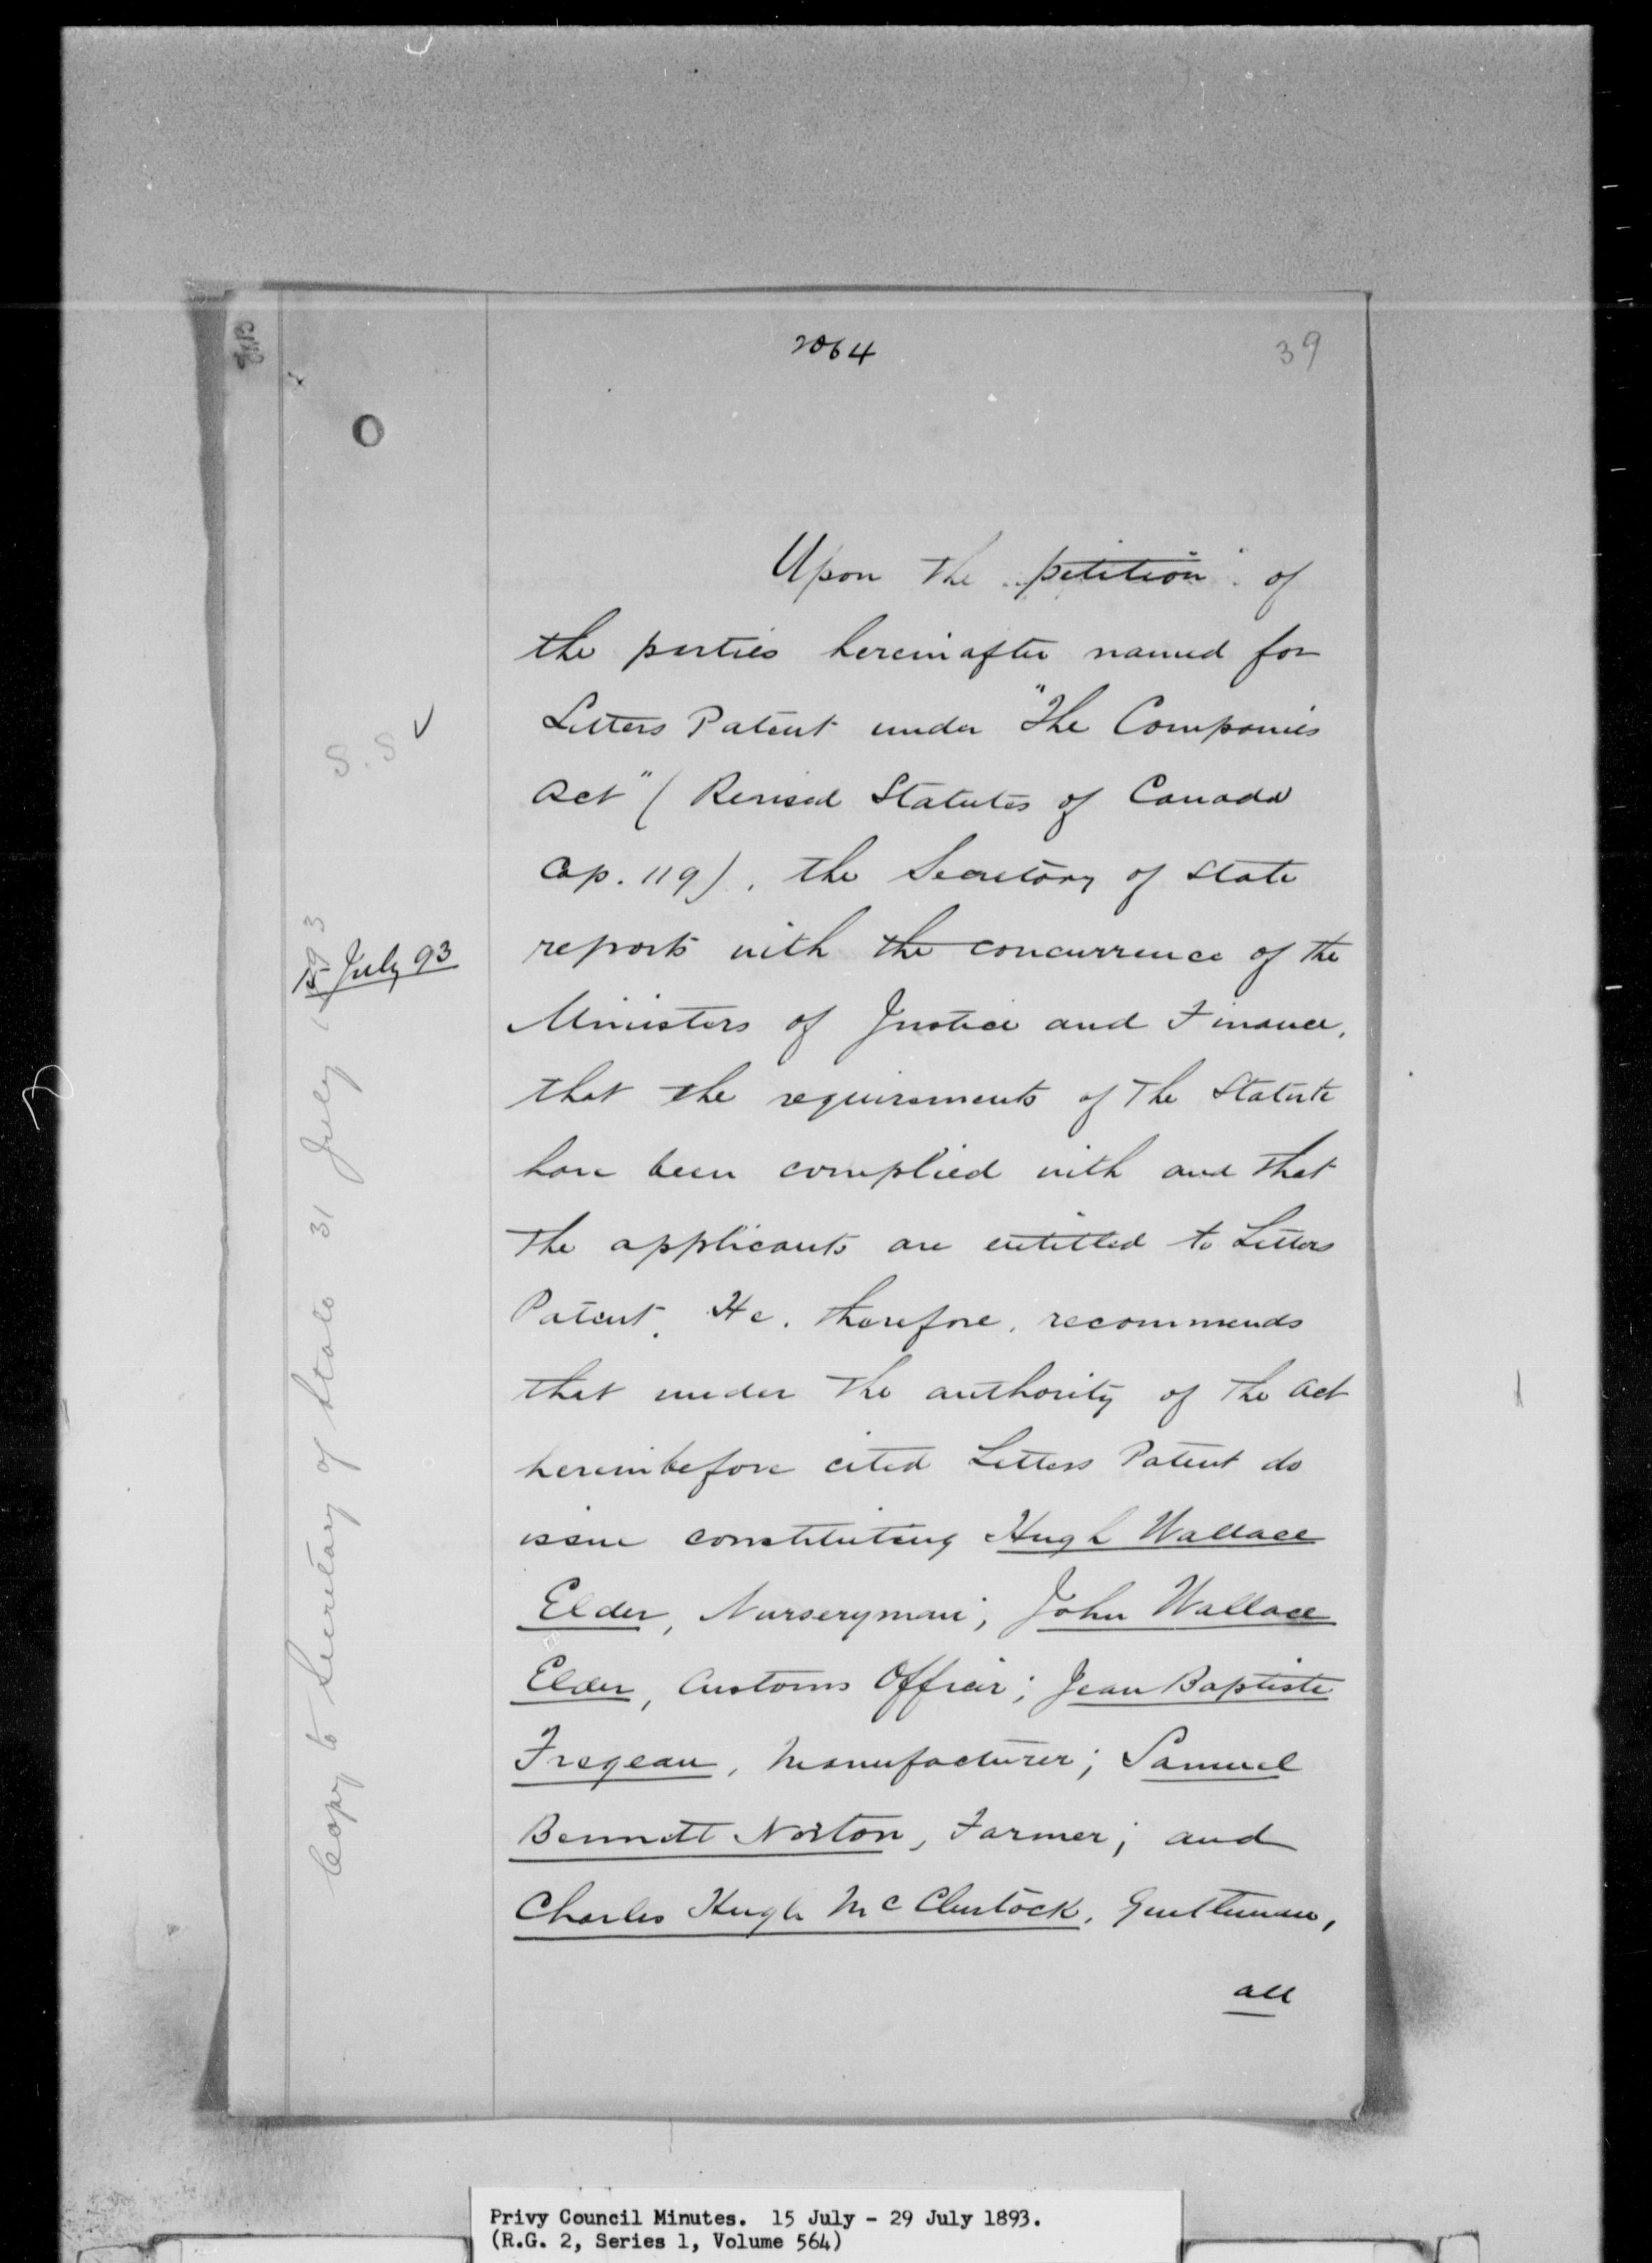 2064
39
Upon the petition of
the parties hereinafter named for
Letters Patent under "The Companies
Act" (Revised Statutes of Canada
Cap. 119), the Secretary of State
reports with the concurrence of the
Ministers of Justice and Finance,
that the requirements of the Statute
have been complied with and that
the applicants are entitled to Letters
Patent. He, therefore, recommends
that under the authority of the Act
hereinbefore cited Letters Patent do
issue constituting Hugh Wallace
Elder, Nurseryman; John Wallace
Elder, Customs Officer; Jean Baptiste
Fregeau, Manufacturer; Samuel
Bennett Norton, Farmer; and
Charles Hugh McClintock, Gentleman,
all
S.S
15 July 93
Copy to Secretary of State 31 July 1893
Privy Council Minutes. 15 July - 29 July 1893.
(R.G. 2, Series 1, Volume 564)